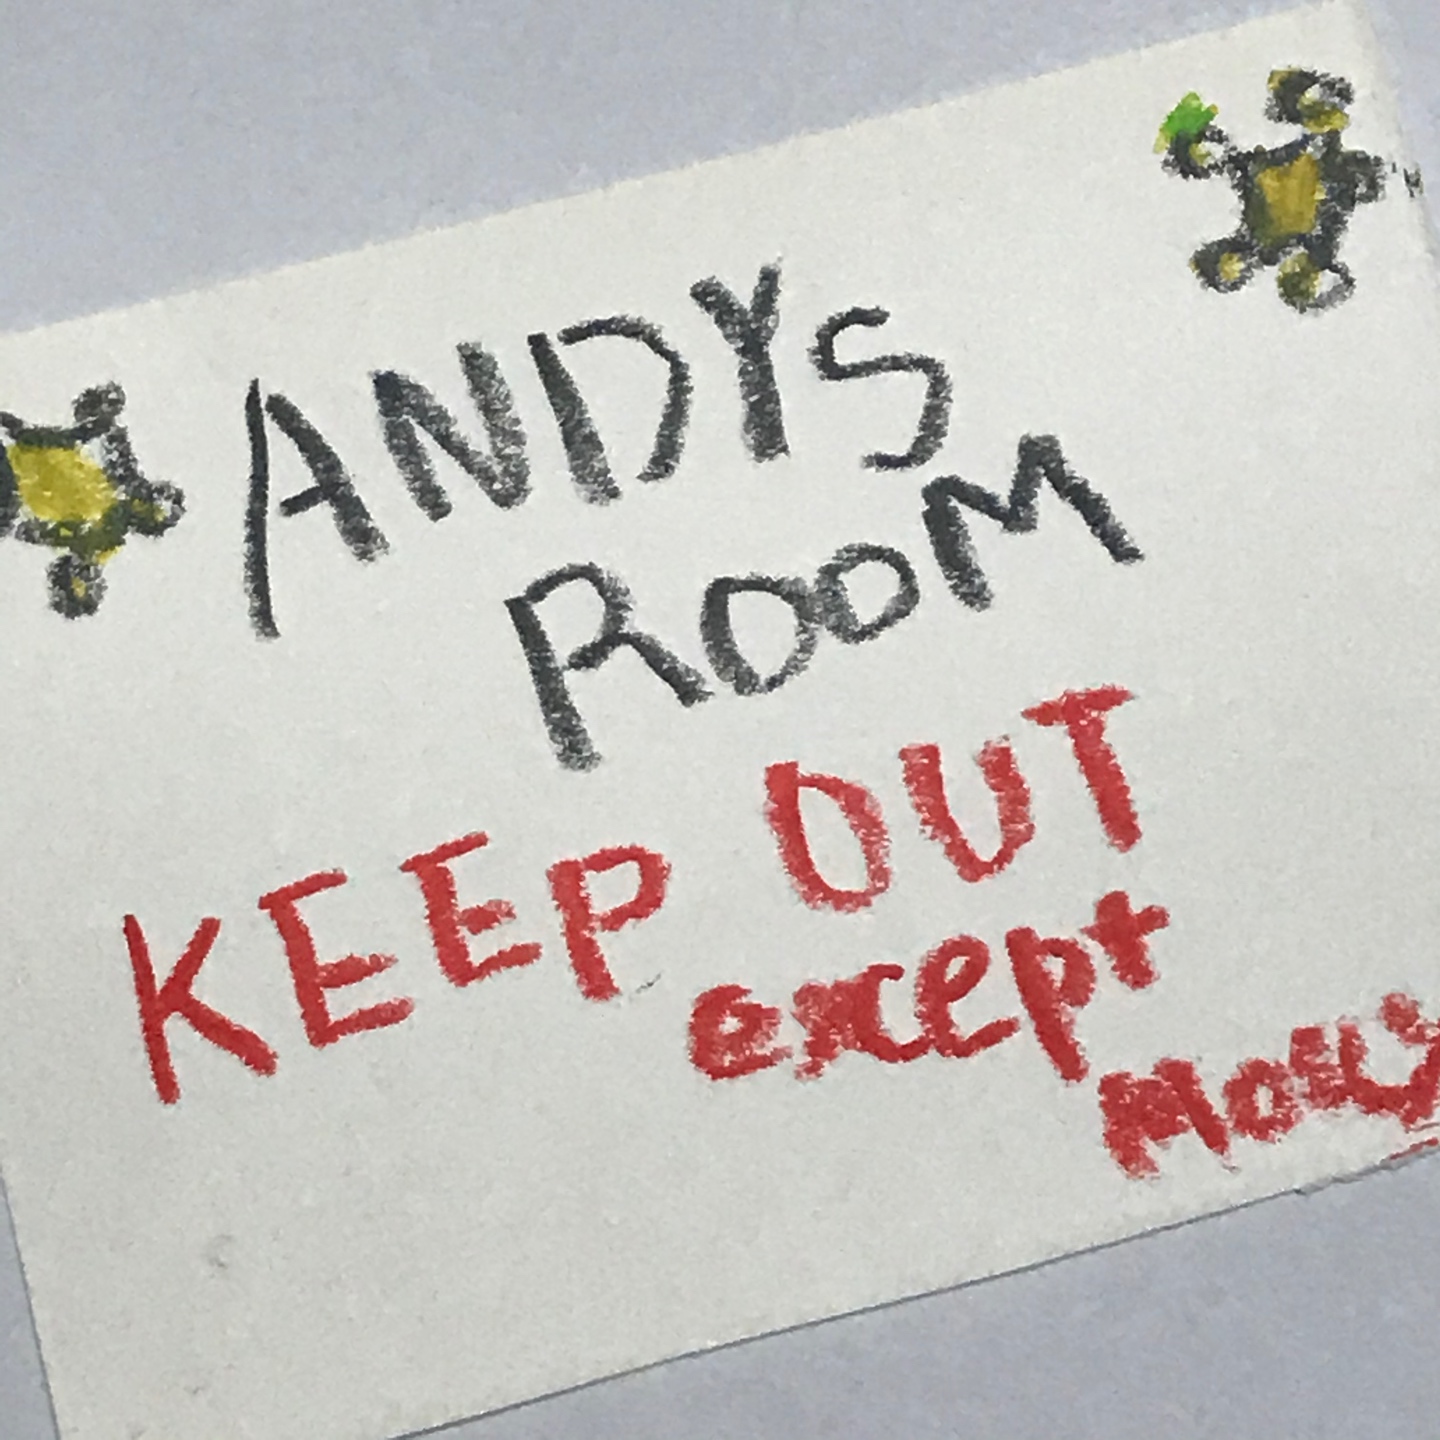 ANDYS
ROOM
KEEP OUT
except
MOLLY